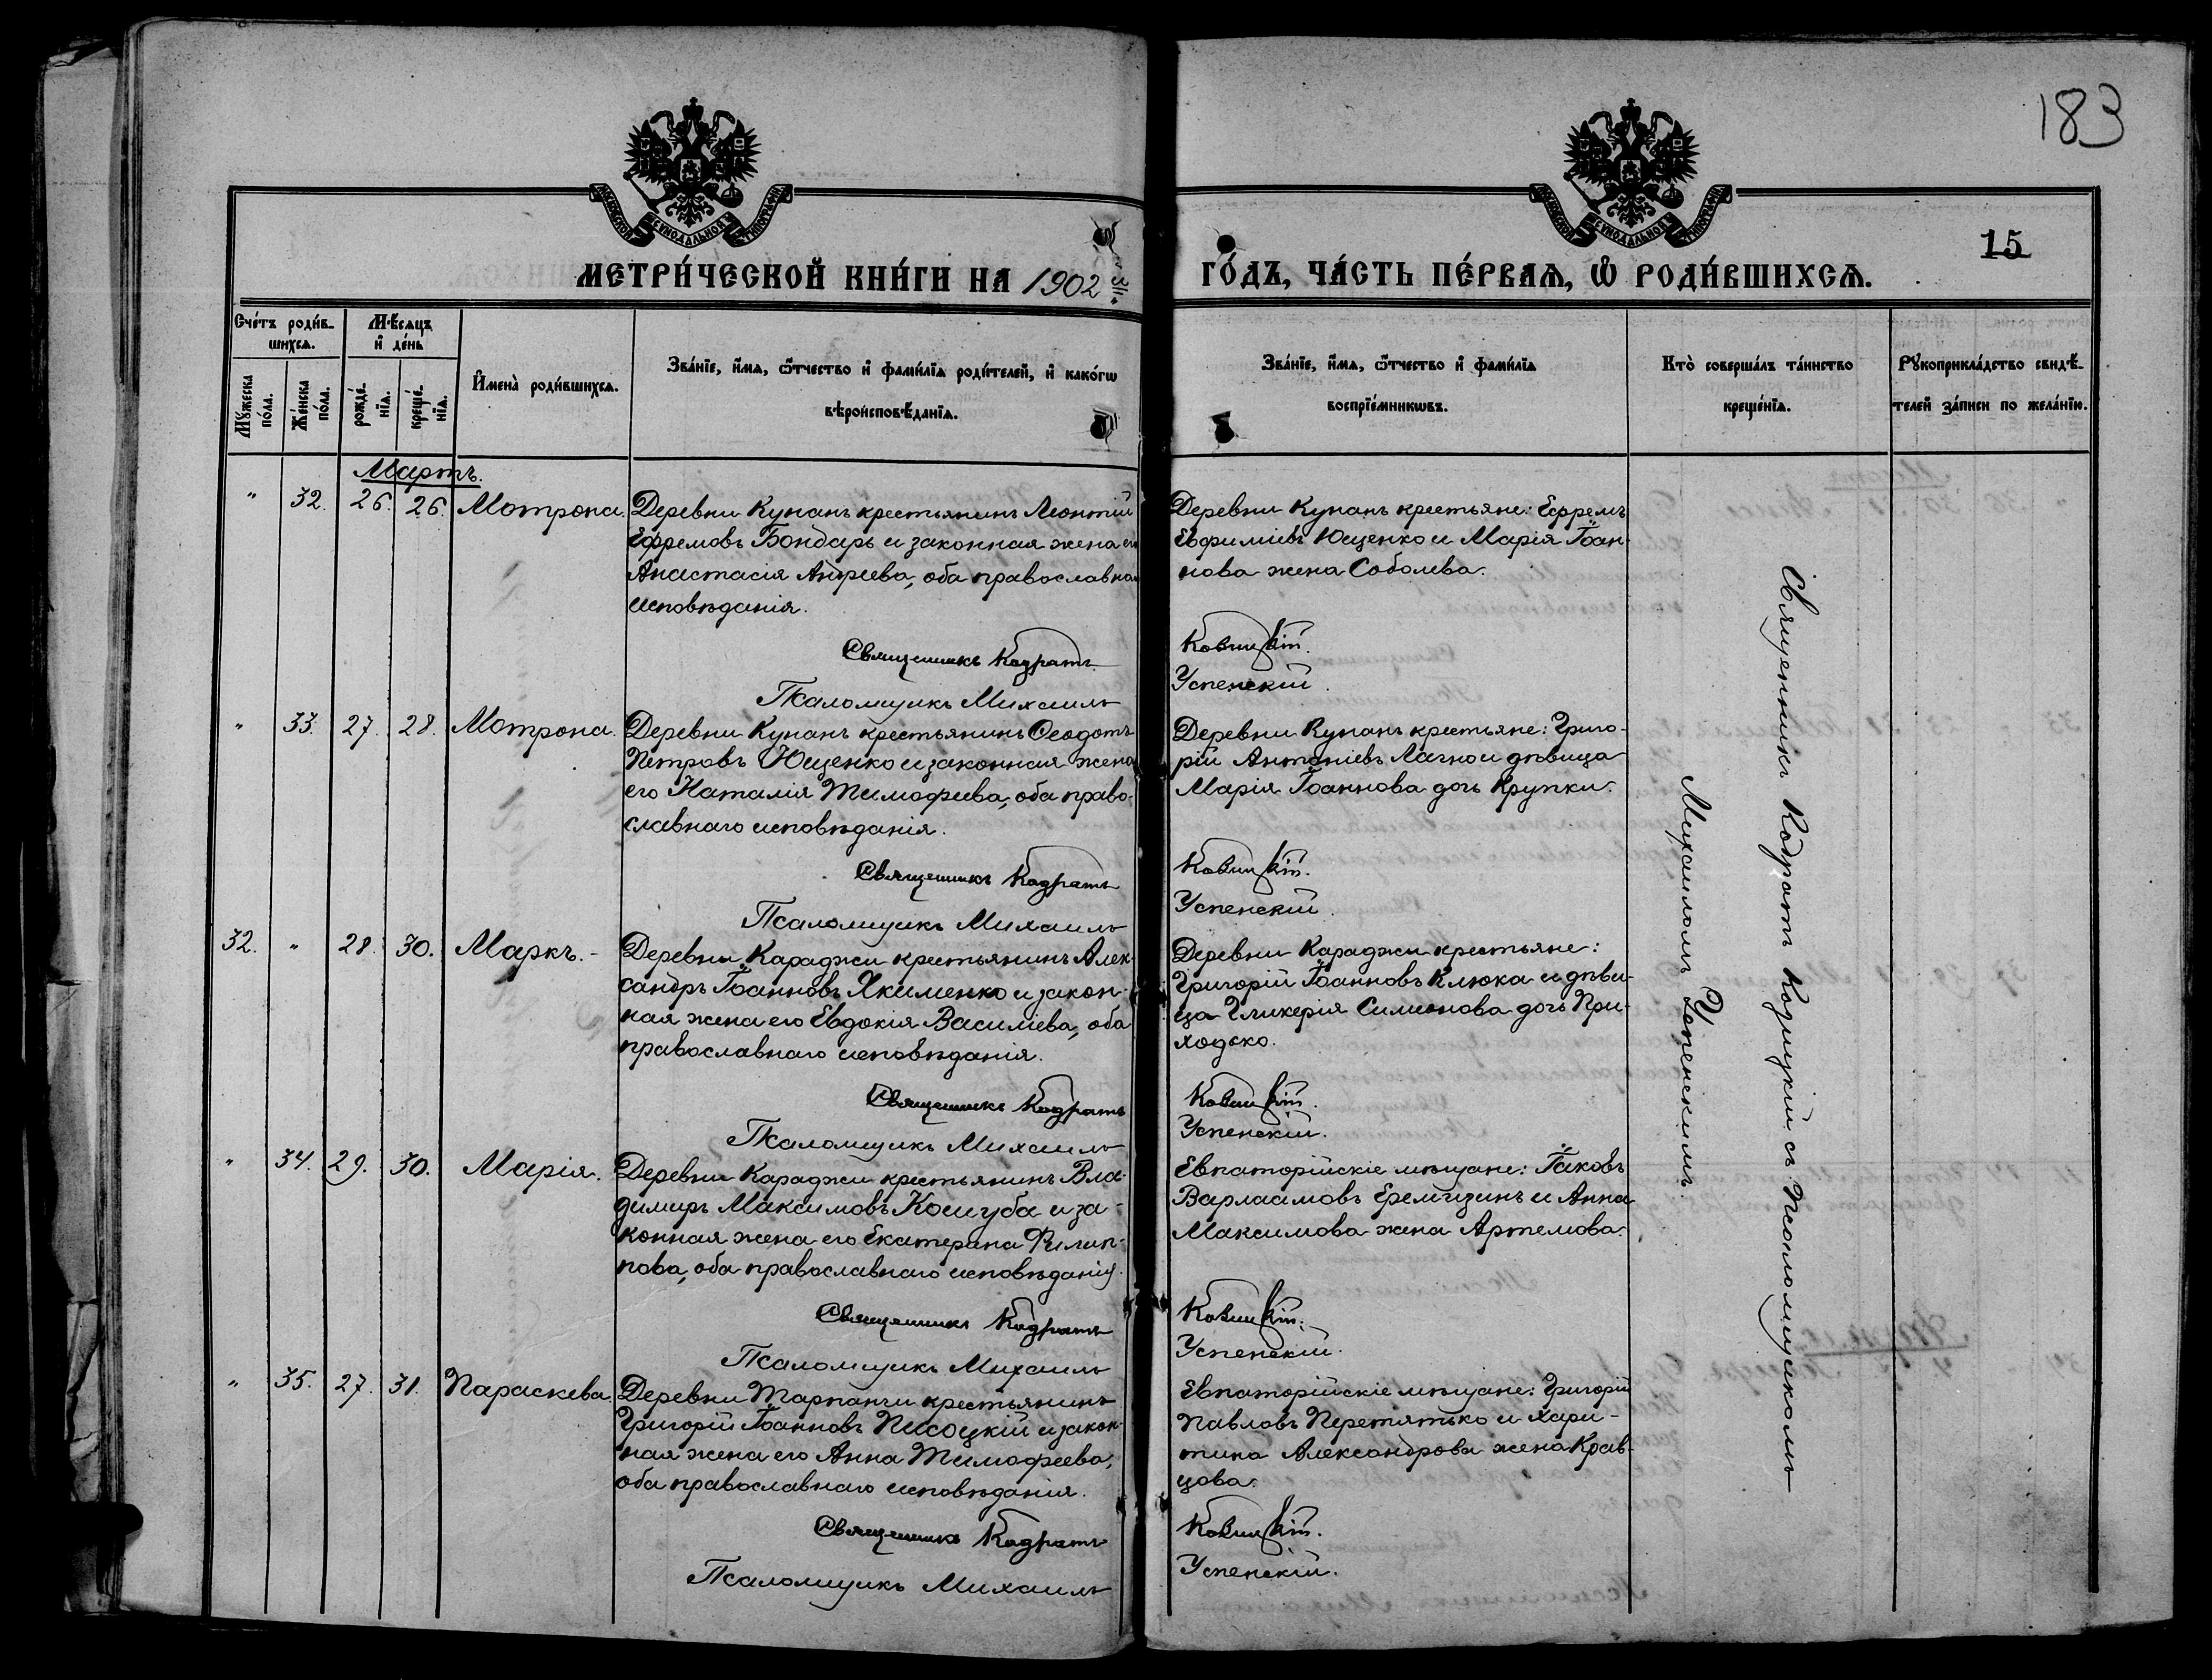 183
МОСКОВСКОЙ СѴНОДАЛЬНОЙ ТИПОГРАФІИ
МОСКОВСКОЙ СѴНОДАЛЬНОЙ ТИПОГРАФІИ
15
МЕТРИ́ЧЕСКОЙ КНИ́ГИ НА 1902 й
ГО́ДЪ, ЧА́СТЬ ПЕ́РВАѦ, Ѡ҆ РОДИ́ВШИХСѦ.
Сче́тъ роди́в-
шихсѧ.
Мꙋ́жеска
по́ла.
Же́нска
по́ла.
Мѣ́сѧцъ
и҆ де́нь
рожде́-
нїѧ.
креще́-
нїѧ.
И҆мена̀ роди́вшихсѧ.
Зва́нїе, и҆́мѧ, ѻ҆́тчество и҆ фами́лїѧ роди́телей, и҆ како́гѡ
вѣроисповѣ́данїѧ.
Зва́нїе, и҆́мѧ, ѻ҆́тчество и҆ фами́лїѧ
воспрїе́мникѡвъ.
Кто̀ соверша́лъ та́инство
креще́нїѧ.
Рꙋкоприкла́дство свидѣ́-
телей за́писи по жела́нїю.
Мартъ.
" 32. 26. 26. Мотрона.
Деревни Кунанъ крестьянинъ Леонтій
Ефремовъ Бондарь и законная жена его
Анастасія Андреева, оба православнаго
исповѣданія.
Священникъ Кодратъ
Псаломщикъ Михаилъ
Деревни Кунанъ крестьяне: Ефремъ
Евфиміевъ Ющенко и Марія Іоан-
нова жена Соболева.
Успенскій.
" 33. 27. 28. Мотрона.
Деревни Кунанъ крестьянинъ Ѳеодотъ
Петровъ Ющенко и законная жена
его Наталія Тимофеева, оба право-
славнаго исповѣданія.
Священникъ Кодратъ
Псаломщикъ Михаилъ
Деревни Кунанъ крестьяне: Григо-
рій Антоніевъ Лагно и дѣвица
Марія Іоаннова дочь Крупки.
Успенскій.
32. " 28. 30. Маркъ.
Деревни Караджи крестьянинъ Алек-
сандръ Іоанновъ Якименко и закон-
ная жена его Евдокія Василіева, оба
православнаго исповѣданія.
Священникъ Кодратъ
Псаломщикъ Михаилъ
Деревни Караджи крестьяне:
Григорій Іоанновъ Клюка и дѣви-
ца Гликерія Симеонова дочь При-
ходько.
Успенскій.
" 34. 29. 30. Марія.
Деревни Караджи крестьянинъ Вла-
димиръ Максимовъ Кошуба и за-
конная жена его Екатерина Филип-
пова, оба православнаго исповѣданія.
Священникъ Кодратъ
Псаломщикъ Михаилъ
Евпаторійскіе мѣщане: Іаковъ
Варлаамовъ Еремизинъ и Анна
Максимова жена Артемова.
Успенскій.
" 35. 27. 31. Параскева.
Деревни Тарпанчи крестьянинъ
Григорій Іоанновъ Писоцкій и закон-
ная жена его Анна Тимофеева,
оба православнаго исповѣданія.
Священникъ Кодратъ
Псаломщикъ Михаилъ
Евпаторійскіе мѣщане: Григорій
Павловъ Перетятько и Хари-
тина Александрова жена Крав-
цова.
Успенскій.
Священникъ Кодратъ съ Псаломщикомъ
Михаиломъ Успенскимъ.